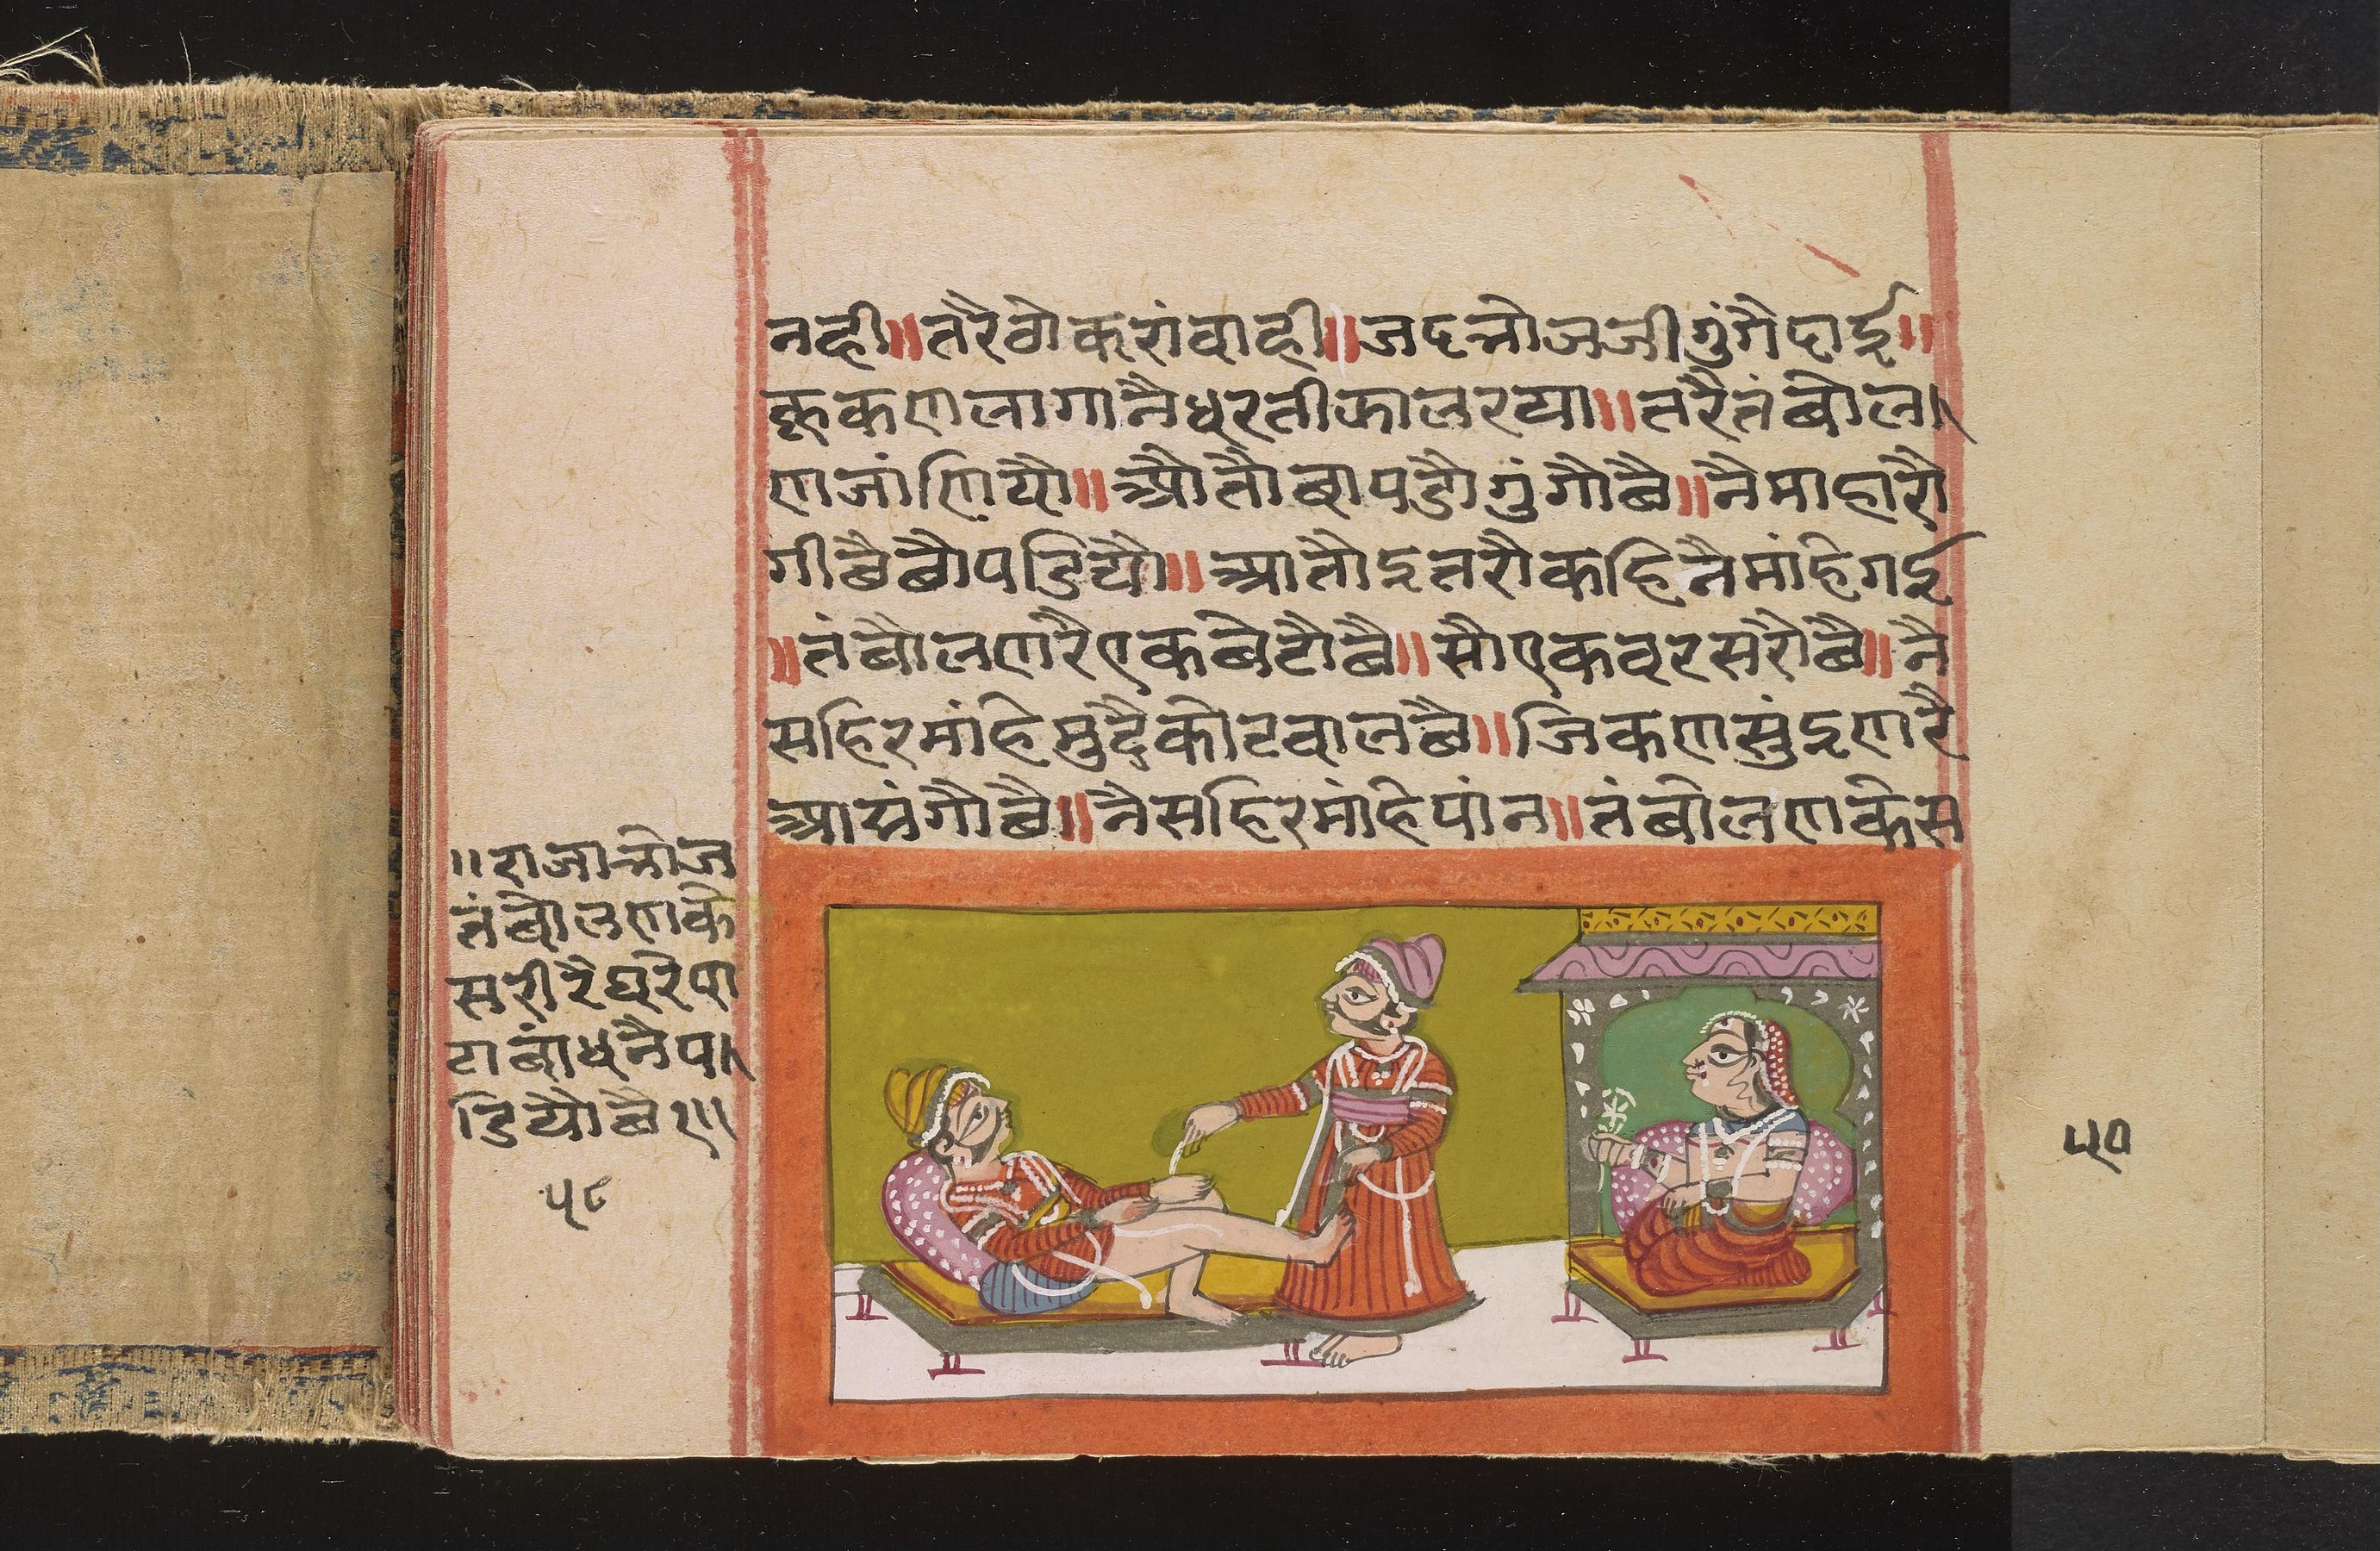 नही॥तरैवोकरांवाही॥जदभोजजीगुंगैदाई॥
कूकणलागानैधरतीफालरया॥तरैतंबोल
णजांणियौ॥औतौबापडौगुंगौछै॥नैमाहारौ
गीछैछौपडियौ॥आतौइतरौकहिनैमांहेगई
॥तंबोलणरैएकबेटौछै॥सौएकवरसरौछै॥नै
सहिरमांहेमुदैकोटवालछै॥जिकणसुंइणरै
आसंगौछै॥नैसहिरमांहेपांन॥तंबोलणकेस
॥राजाभोज
तंबोलणके
सरीरैघरेपा
टाबांधनैप
डियौछै१॥
५८
५०